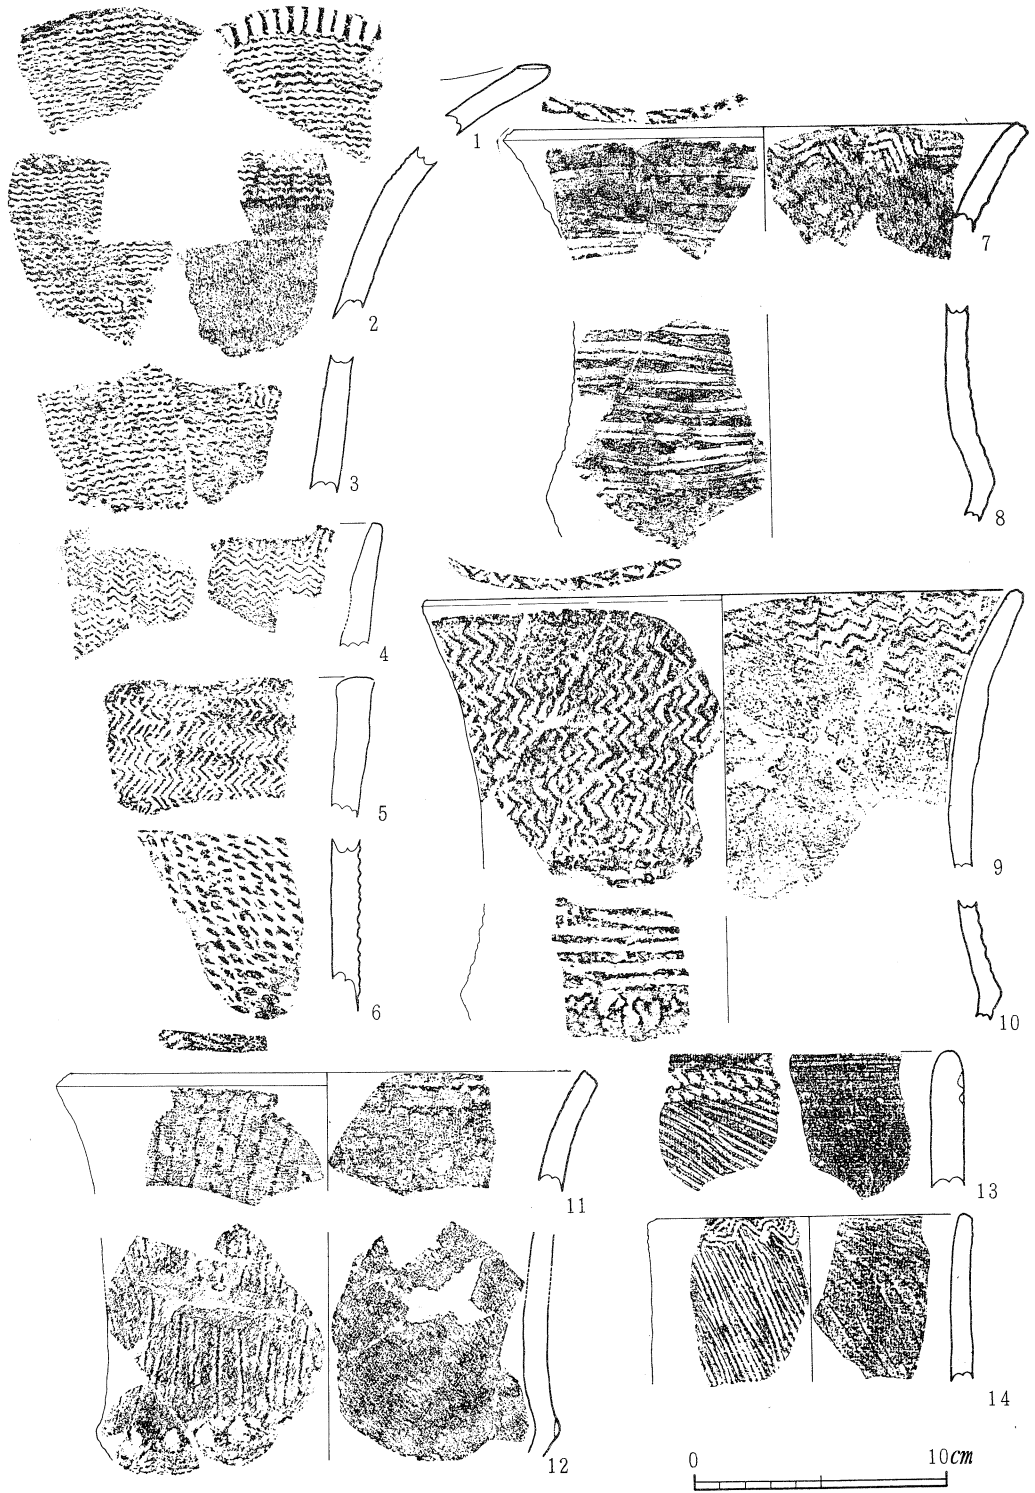 1
2
3
4
5
6
7
8
9
10
11
12
13
14
0 10cm